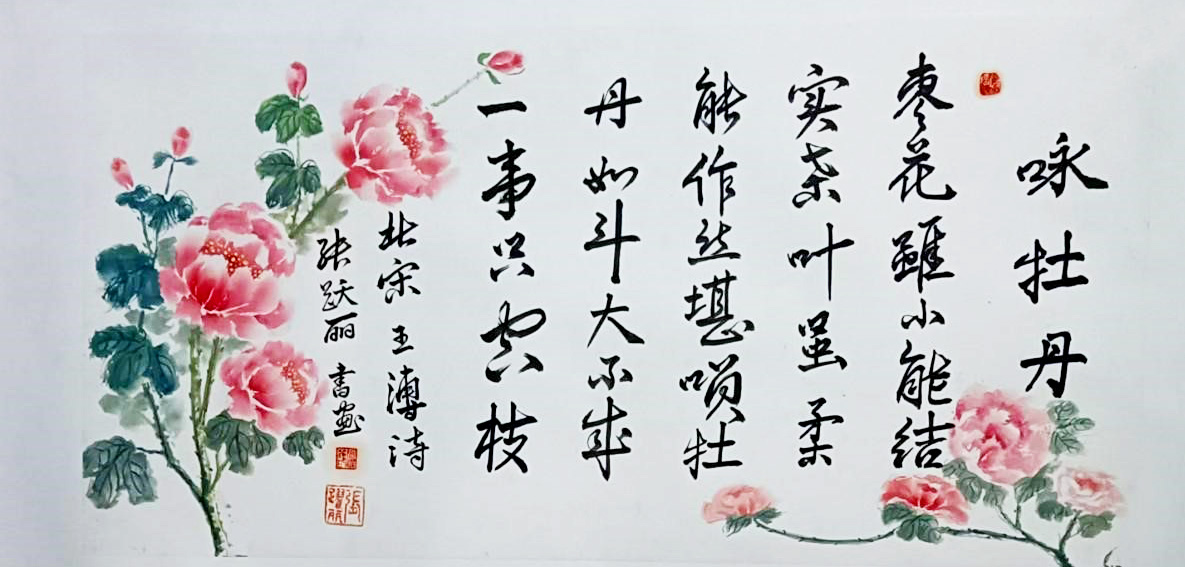 咏牡丹
枣花雖小能结
实桑叶虽柔
能作丝堪牡
丹如斗大不成
一事只空枝
北宋王溥诗
张跃丽書画